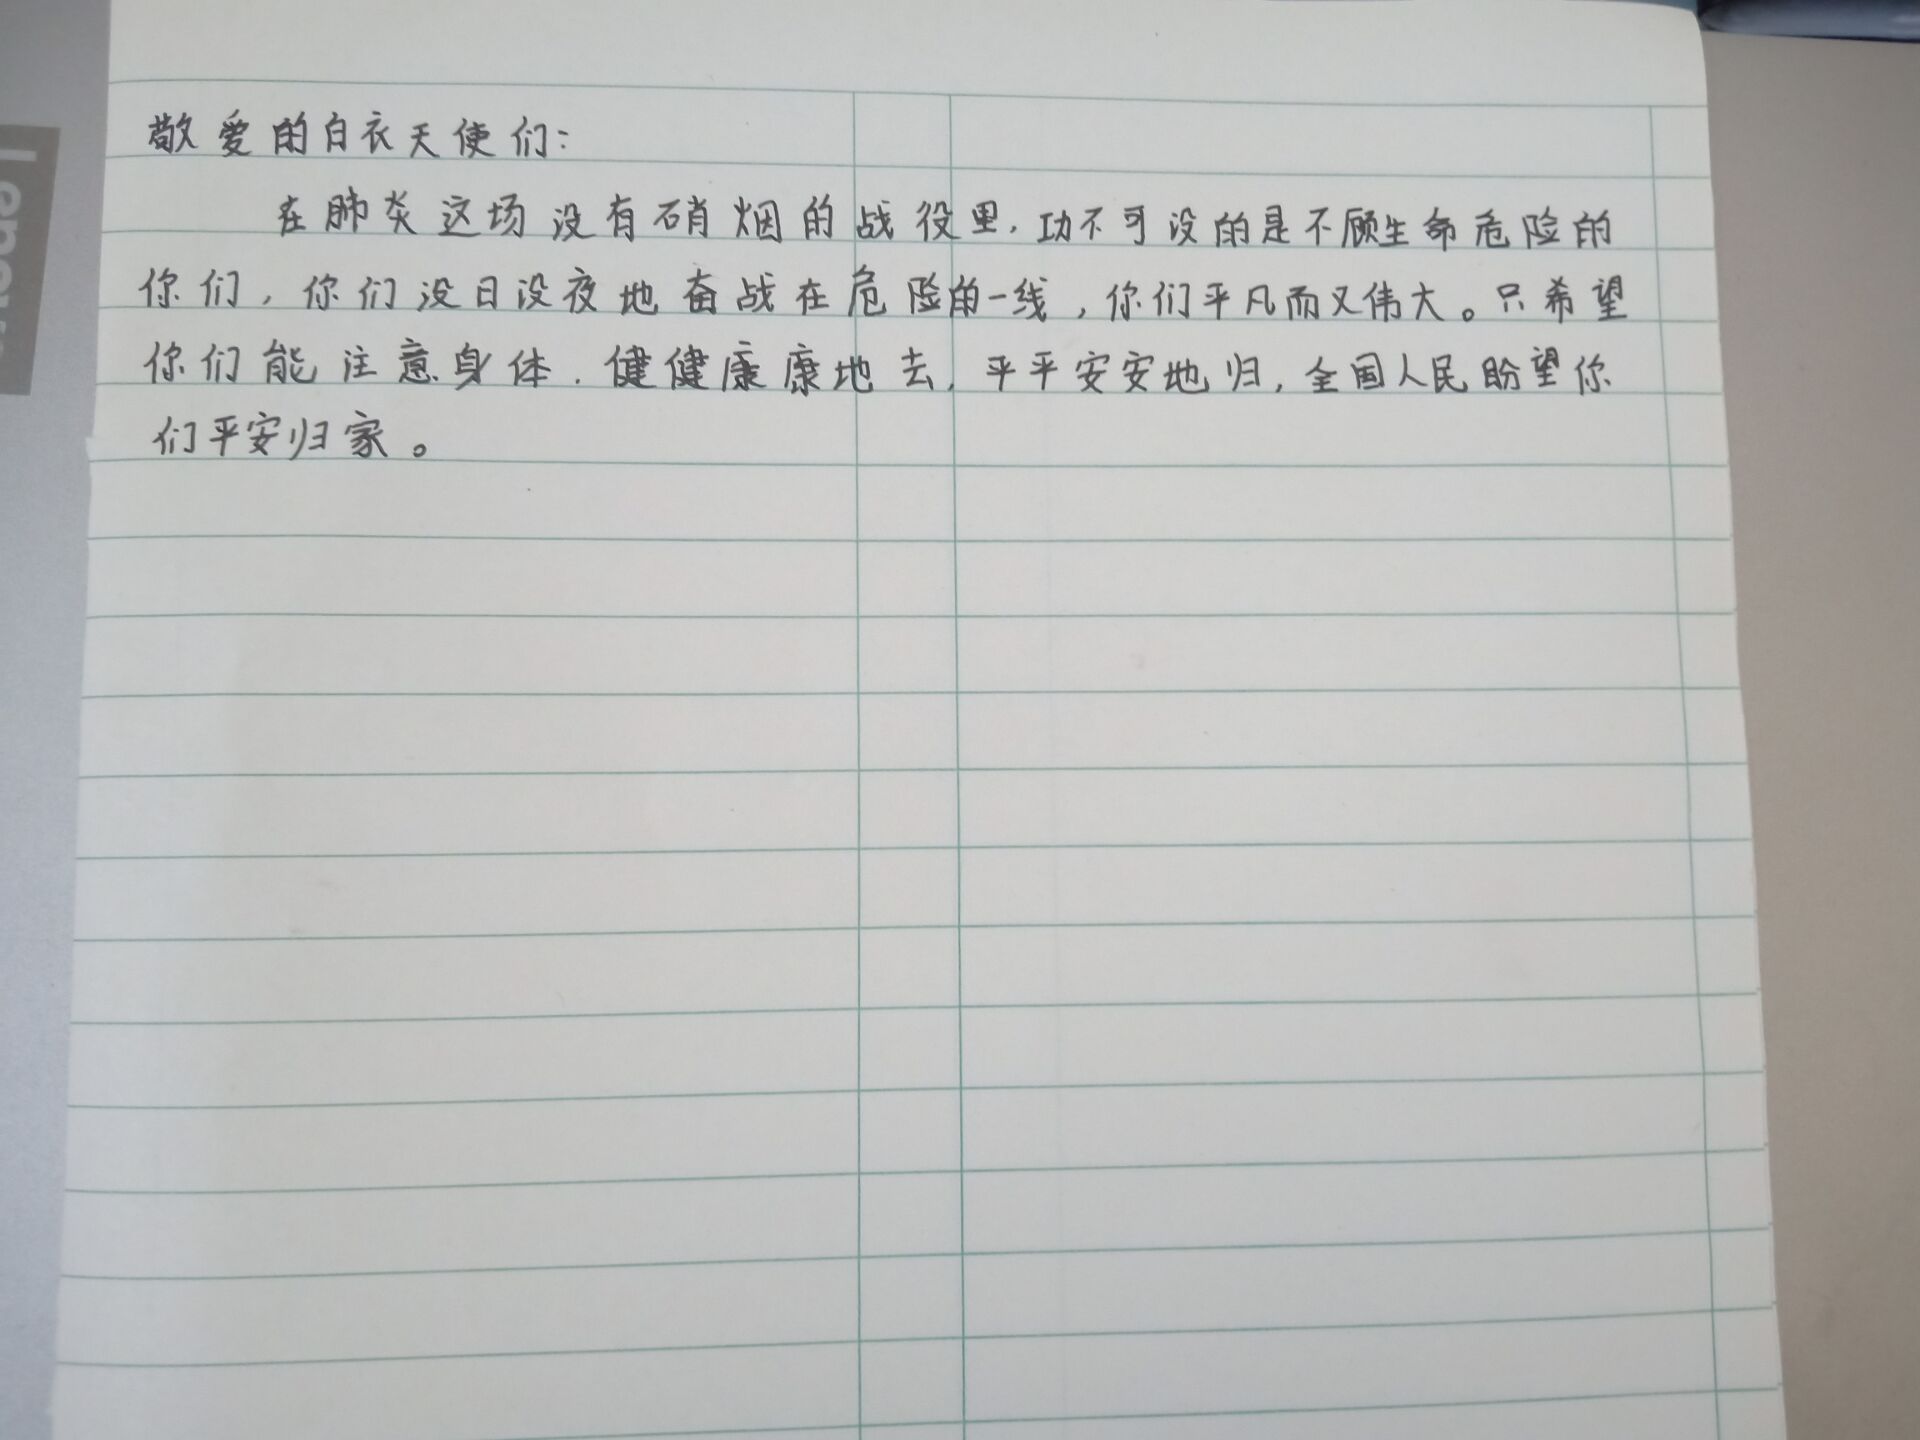 敬爱的白衣天使们：
在肺炎这场没有硝烟的战役里，功不可没的是不顾生命危险的
你们，你们没日没夜地奋战在危险的一线，你们平凡而又伟大。只希望
你们能注意身体．健健康康地去，平平安安地归，全国人民盼望你
们平安归家。